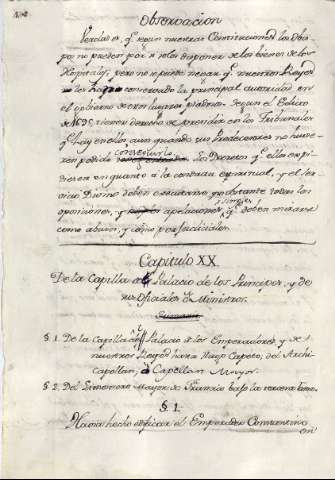 Observacion
Verdad es, q.e segun nuestras Constituciones los Obis-
pos no pueden por si solos disponer de los bienes de los
Hospitales, pero no se puede negar q.e nuestros Reyes
les han conservado la principal autoridad en
el gobierno de estos lugares piadosos. Segun el Edicto
de 1695 tienen derecho de presidir en los Tribunales
q.e hay en ellos, aun quando sus Predecesores no huvie-
sen podido conseguirlo. los Decretos q.e ellos expi-
dieren en quanto à la conducta espiritual, y el Ser-
vicio Divino deben executarse, no obstante todas las
oposiciones, y apelaciones simples q.e deben mirarse
como abusos, y como perjudiciales.
Capitulo XX.
De la Capilla del Palacio de los Principes, y de
sus Oficiales ò Ministros.
Sumario
§ 1. De la Capilla del Palacio de los Emperadores y de
nuestros Reyes hasta Hugo Capeto, del Archi-
capellan, ò Capellan Mayor.
§ 2. Del Limosnero Mayor de Francia bajo la tercera
§ 1.
Havia hecho edificar el Emperador Constantino
en